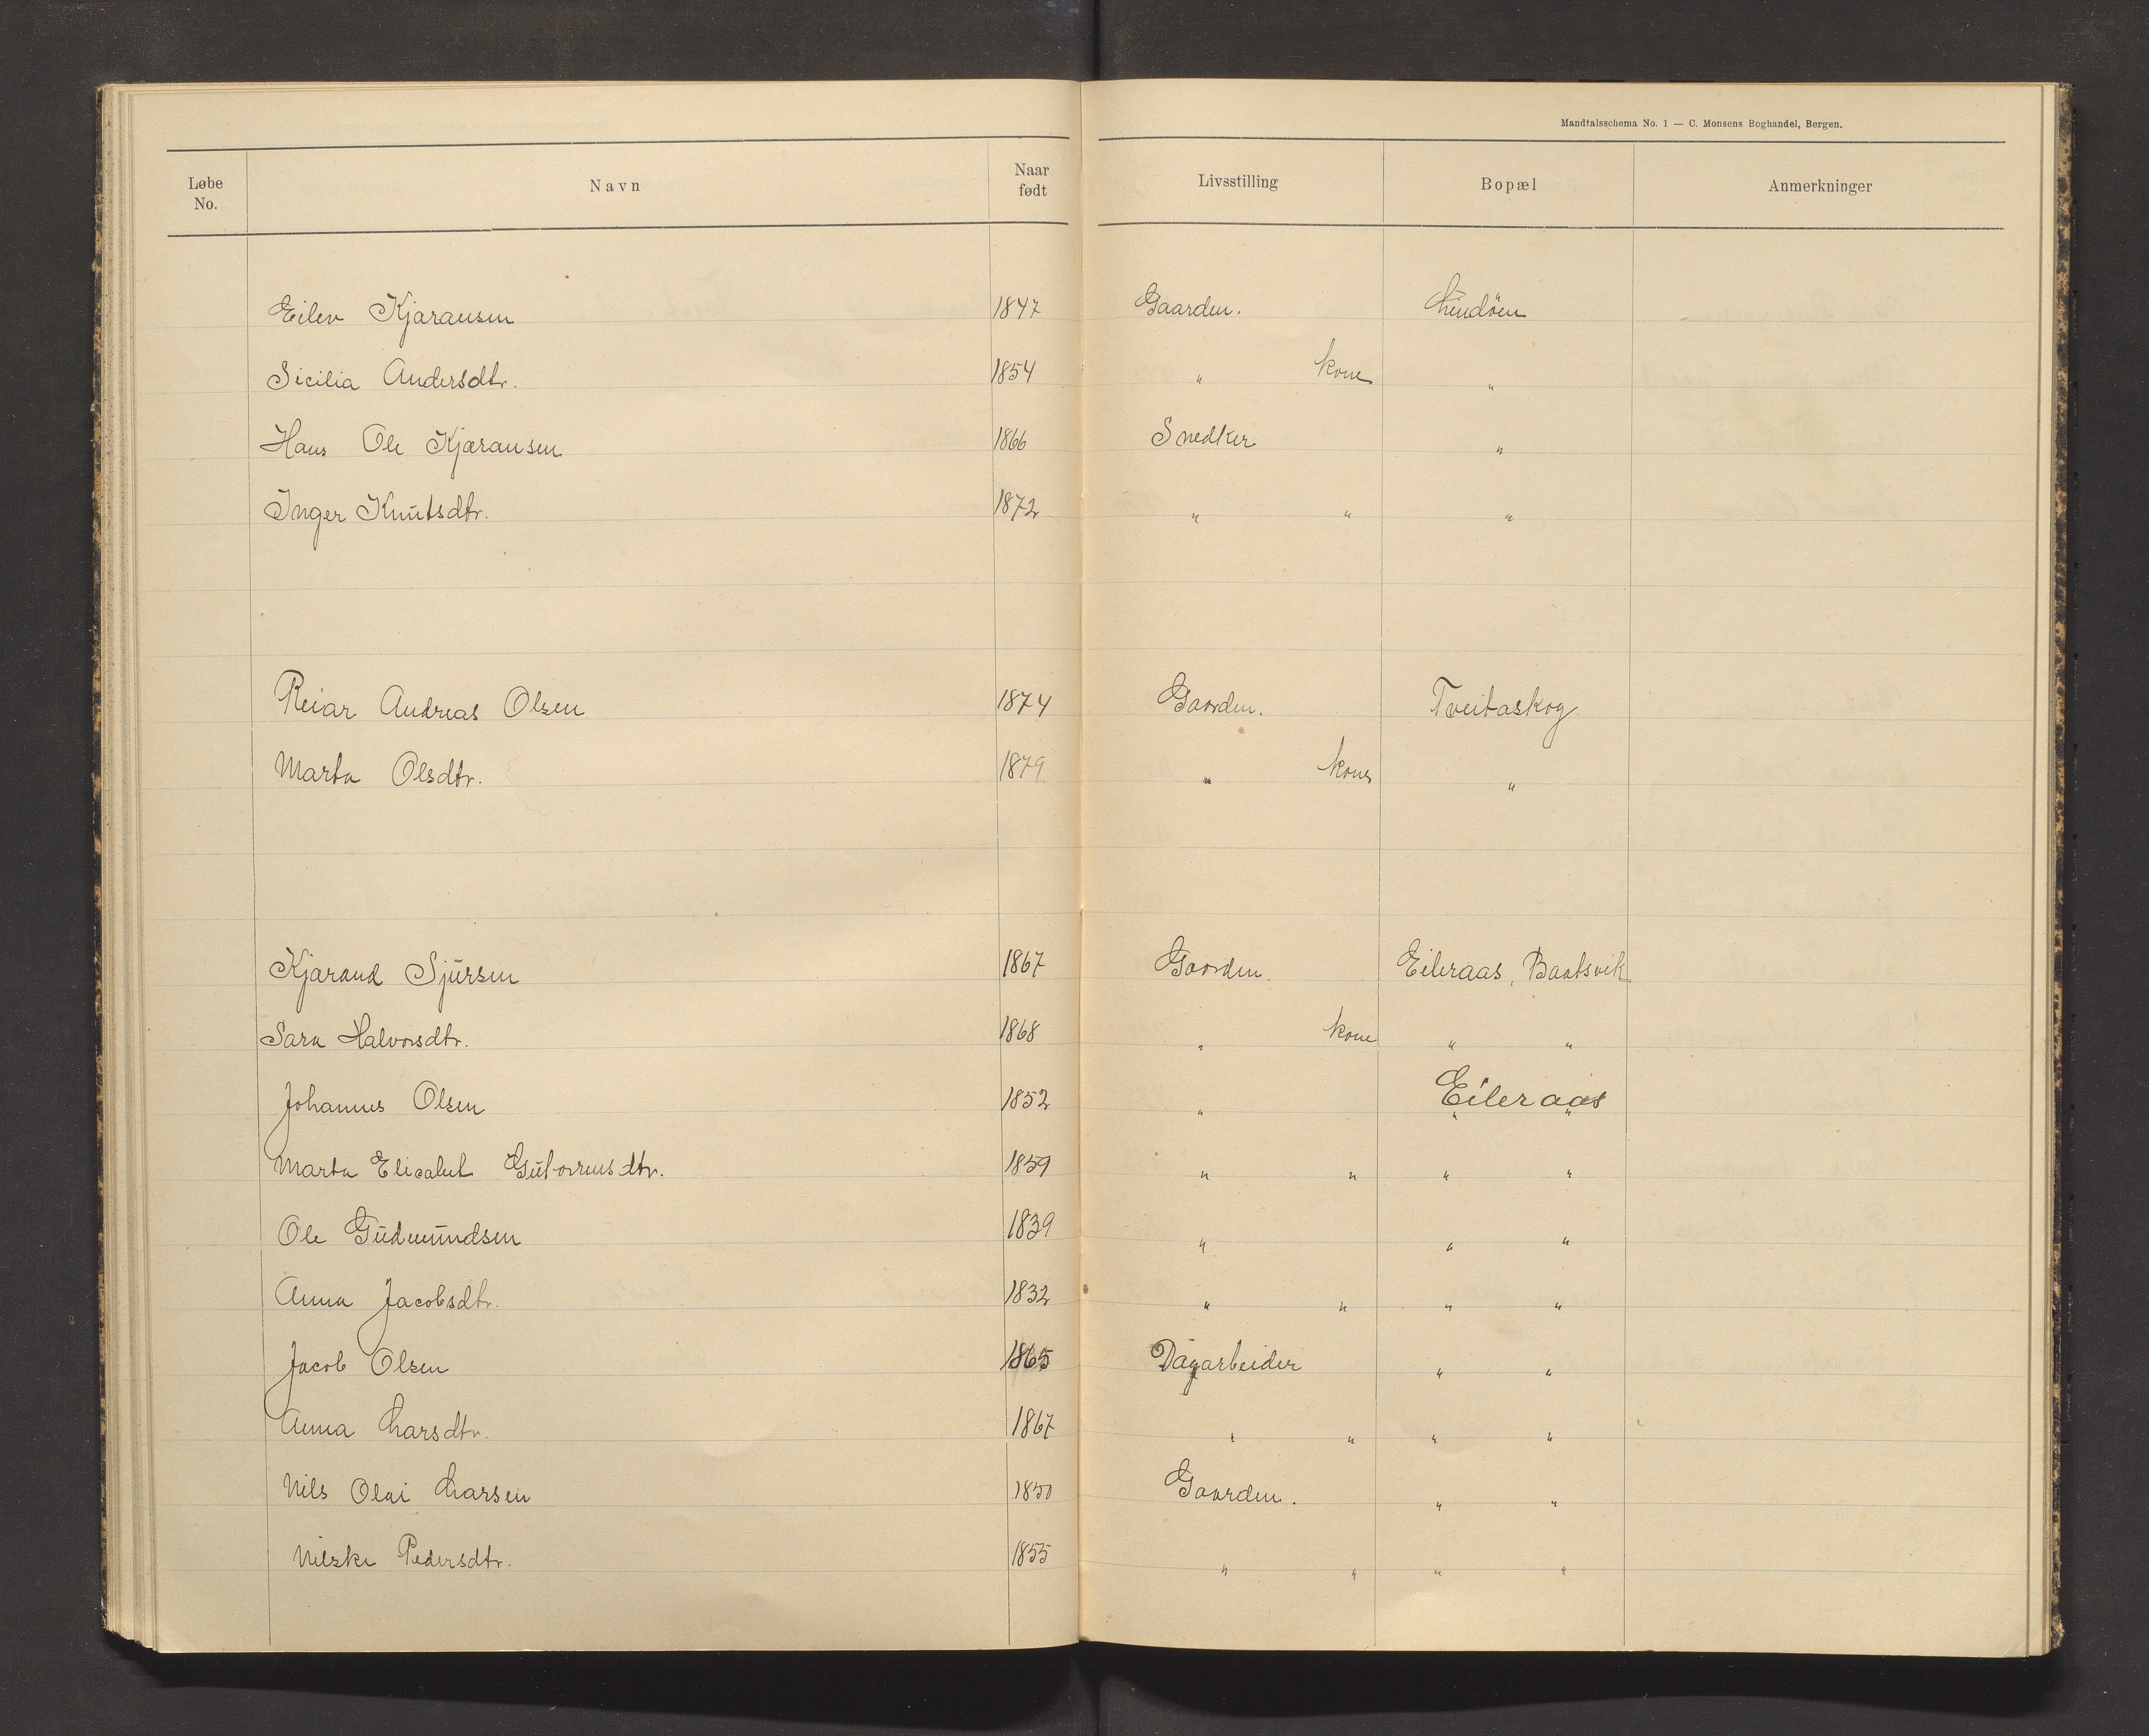 Mandtalsschema No. 1 — C. Monsens Boghandel, Bergen.
Løbe No. Navn Naar født Livsstilling Bopæl Anmerkninger
Eilev Kjaransen 1847 Gaarden. Lindöen
Sicilia Andersdtr. 1854 " kone "
Hans Ole Kjæransen 1866 Snedker "
Inger Knutsdtr. 1872 " " "
Reiar Andreas Olsen 1874 Gaarden. Tveitaskog
Marta Olsdtr. 1879 " kone "
Kjarand Sjursen 1867 Gaarden. Eileraas, Baatsvik
Sara Halvorsdtr. 1868 " kone " "
Johannes Olsen 1852 " Eileraas
Marta Elisabet Gutormsdtr. 1859 " " " "
Ole Gudmundsen 1839 " " "
Anna Jacobsdtr. 1832 " " " "
Jacob Olsen 1865 Dagarbeider " "
Anna Larsdtr. 1867 " " " "
Nils Olai Larsen 1850 Gaarden. " "
Nilske Pedersdtr. 1855 " " " "